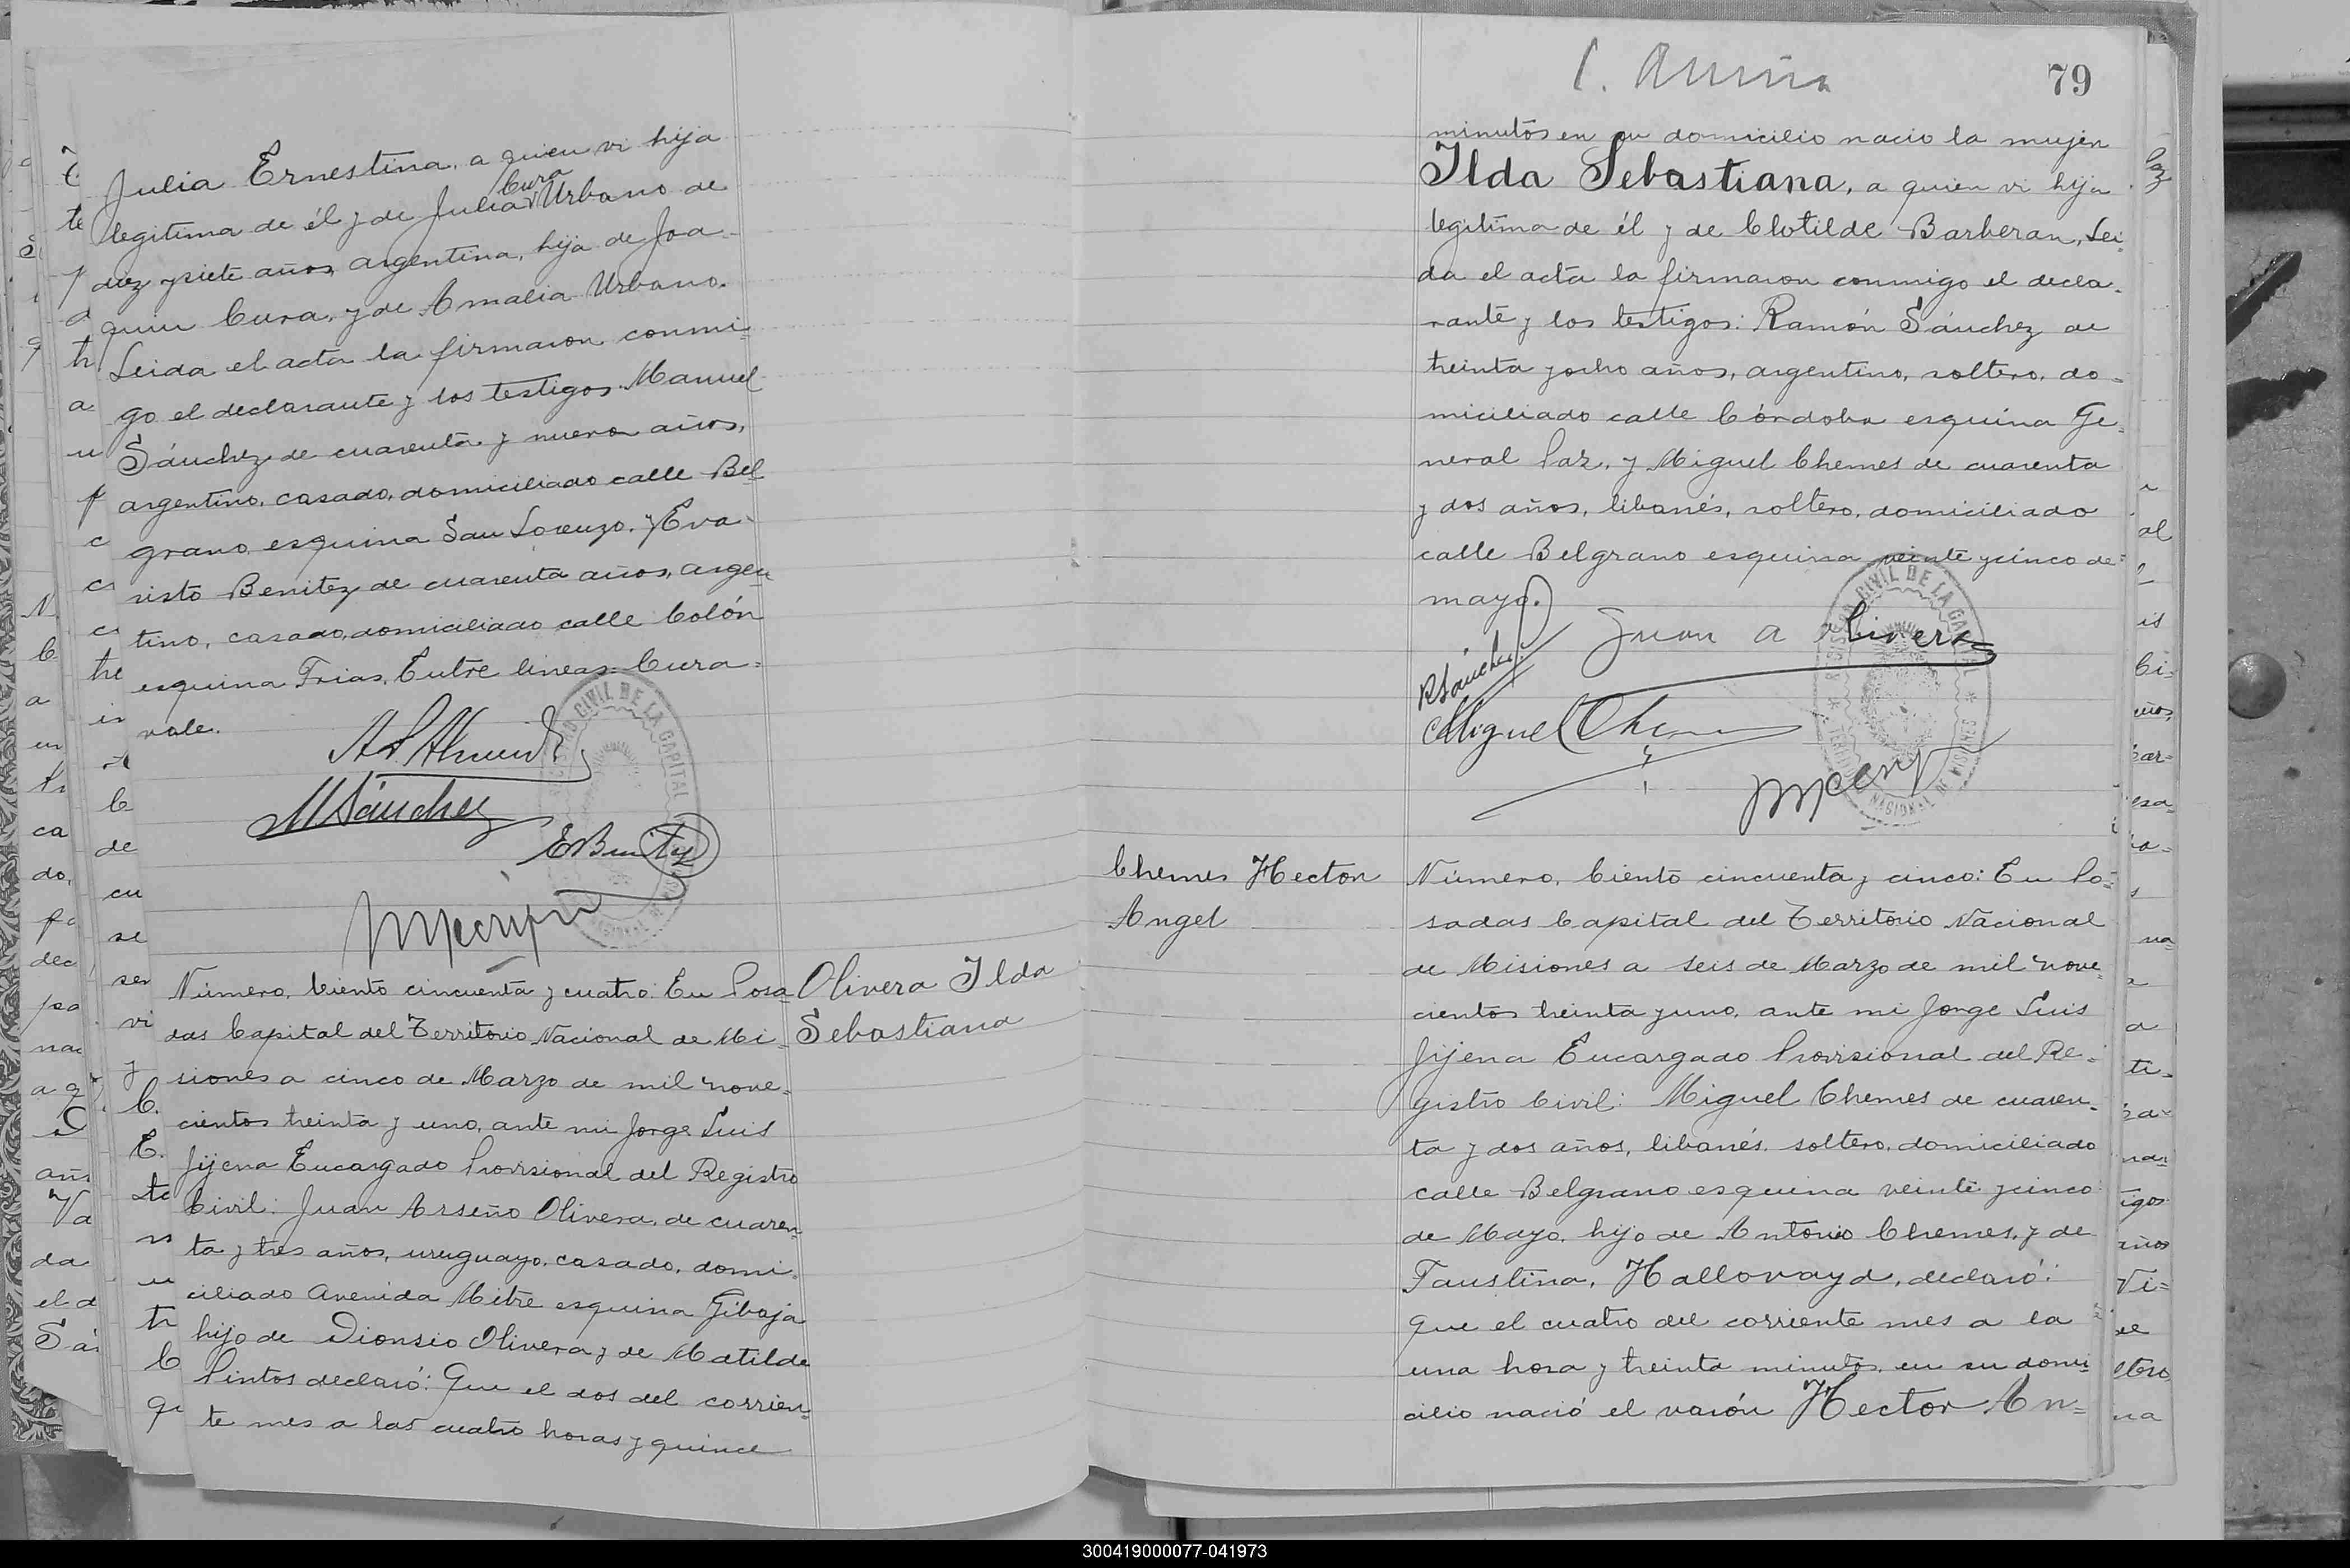 Julia Ernestina, a quien vi hija
Cura
legitima de él y de Julia Urbano de
diez y siete años, argentina, hija de Joa-
quin Cura, y de Amalia Urbano.
Leida el acta la firmaron conmi=
go el declarante y los testigos: Manuel
Sánchez de cuarenta y nueve años,
argentino, casado, domiciliado calle Bel
grano esquina San Lorenzo. y Eva-
risto Benitez de cuarenta años, argen
tino, casado, domiciliado calle Colón
esquina Frias. Entre lineas: Cura=
vale.
MSánchez
EBenitez
REGISTRO CIVIL DE LA CAPITAL
Número, Ciento cincuenta y cuatro: En Posa=
das Capital del Territorio Nacional de Mi=
siones a cinco de Marzo de mil nove=
cientos treinta y uno, ante mi Jorge Luis
Jijena Encargado Provisional del Registro
Civil: Juan Arseño Olivera, de cuaren
ta y tres años, uruguayo, casado, domi
ciliado Avenida Mitre esquina Gibaja
hijo de Dionsio Olivera y de Matilde
Pintos declaró: Que el dos del corrien=
te mes a las cuatro horas y quince
Olivera Ilda
Sebastiana
79
minutos en su domicilio nacio la mujer
Ilda Sebastiana, a quien vi hija
legitima de él y de Clotilde Barberan, Lei
da el acta la firmaron conmigo el decla-
rante y los testigos: Ramón Sánchez de
treinta y ocho años, argentino, soltero, do=
miciliado calle Córdoba esquina Ge-
neral Paz, y Miguel Chemes de cuarenta
y dos años, libanés, soltero, domiciliado
calle Belgrano esquina veinte y cinco de=
mayo.
Juan A Olivera
RSánchez
Miguel Che
REGISTRO CIVIL DE LA CAPITAL
TERRITORIO NACIONAL DE MISIONES
Chemes Hector
Angel
Número, Ciento cincuenta y cinco: En Po=
sadas Capital del Territorio Nacional
de Misiones a seis de Marzo de mil nove=
cientos treinta y uno, ante mi Jorge Luis
Jijena Encargado Provisional del Re=
gistro Civil: Miguel Chemes de cuaren-
ta y dos años, libanés, soltero, domiciliado
calle Belgrano esquina veinte y cinco
de Mayo, hijo de Antonio Chemes, y de
Faustina, Hallovayd, declaró:
Que el cuatro del corriente mes a la
una hora y treinta minutos, en su domi
cilio nació el varón Hector An=
300419000077-041973